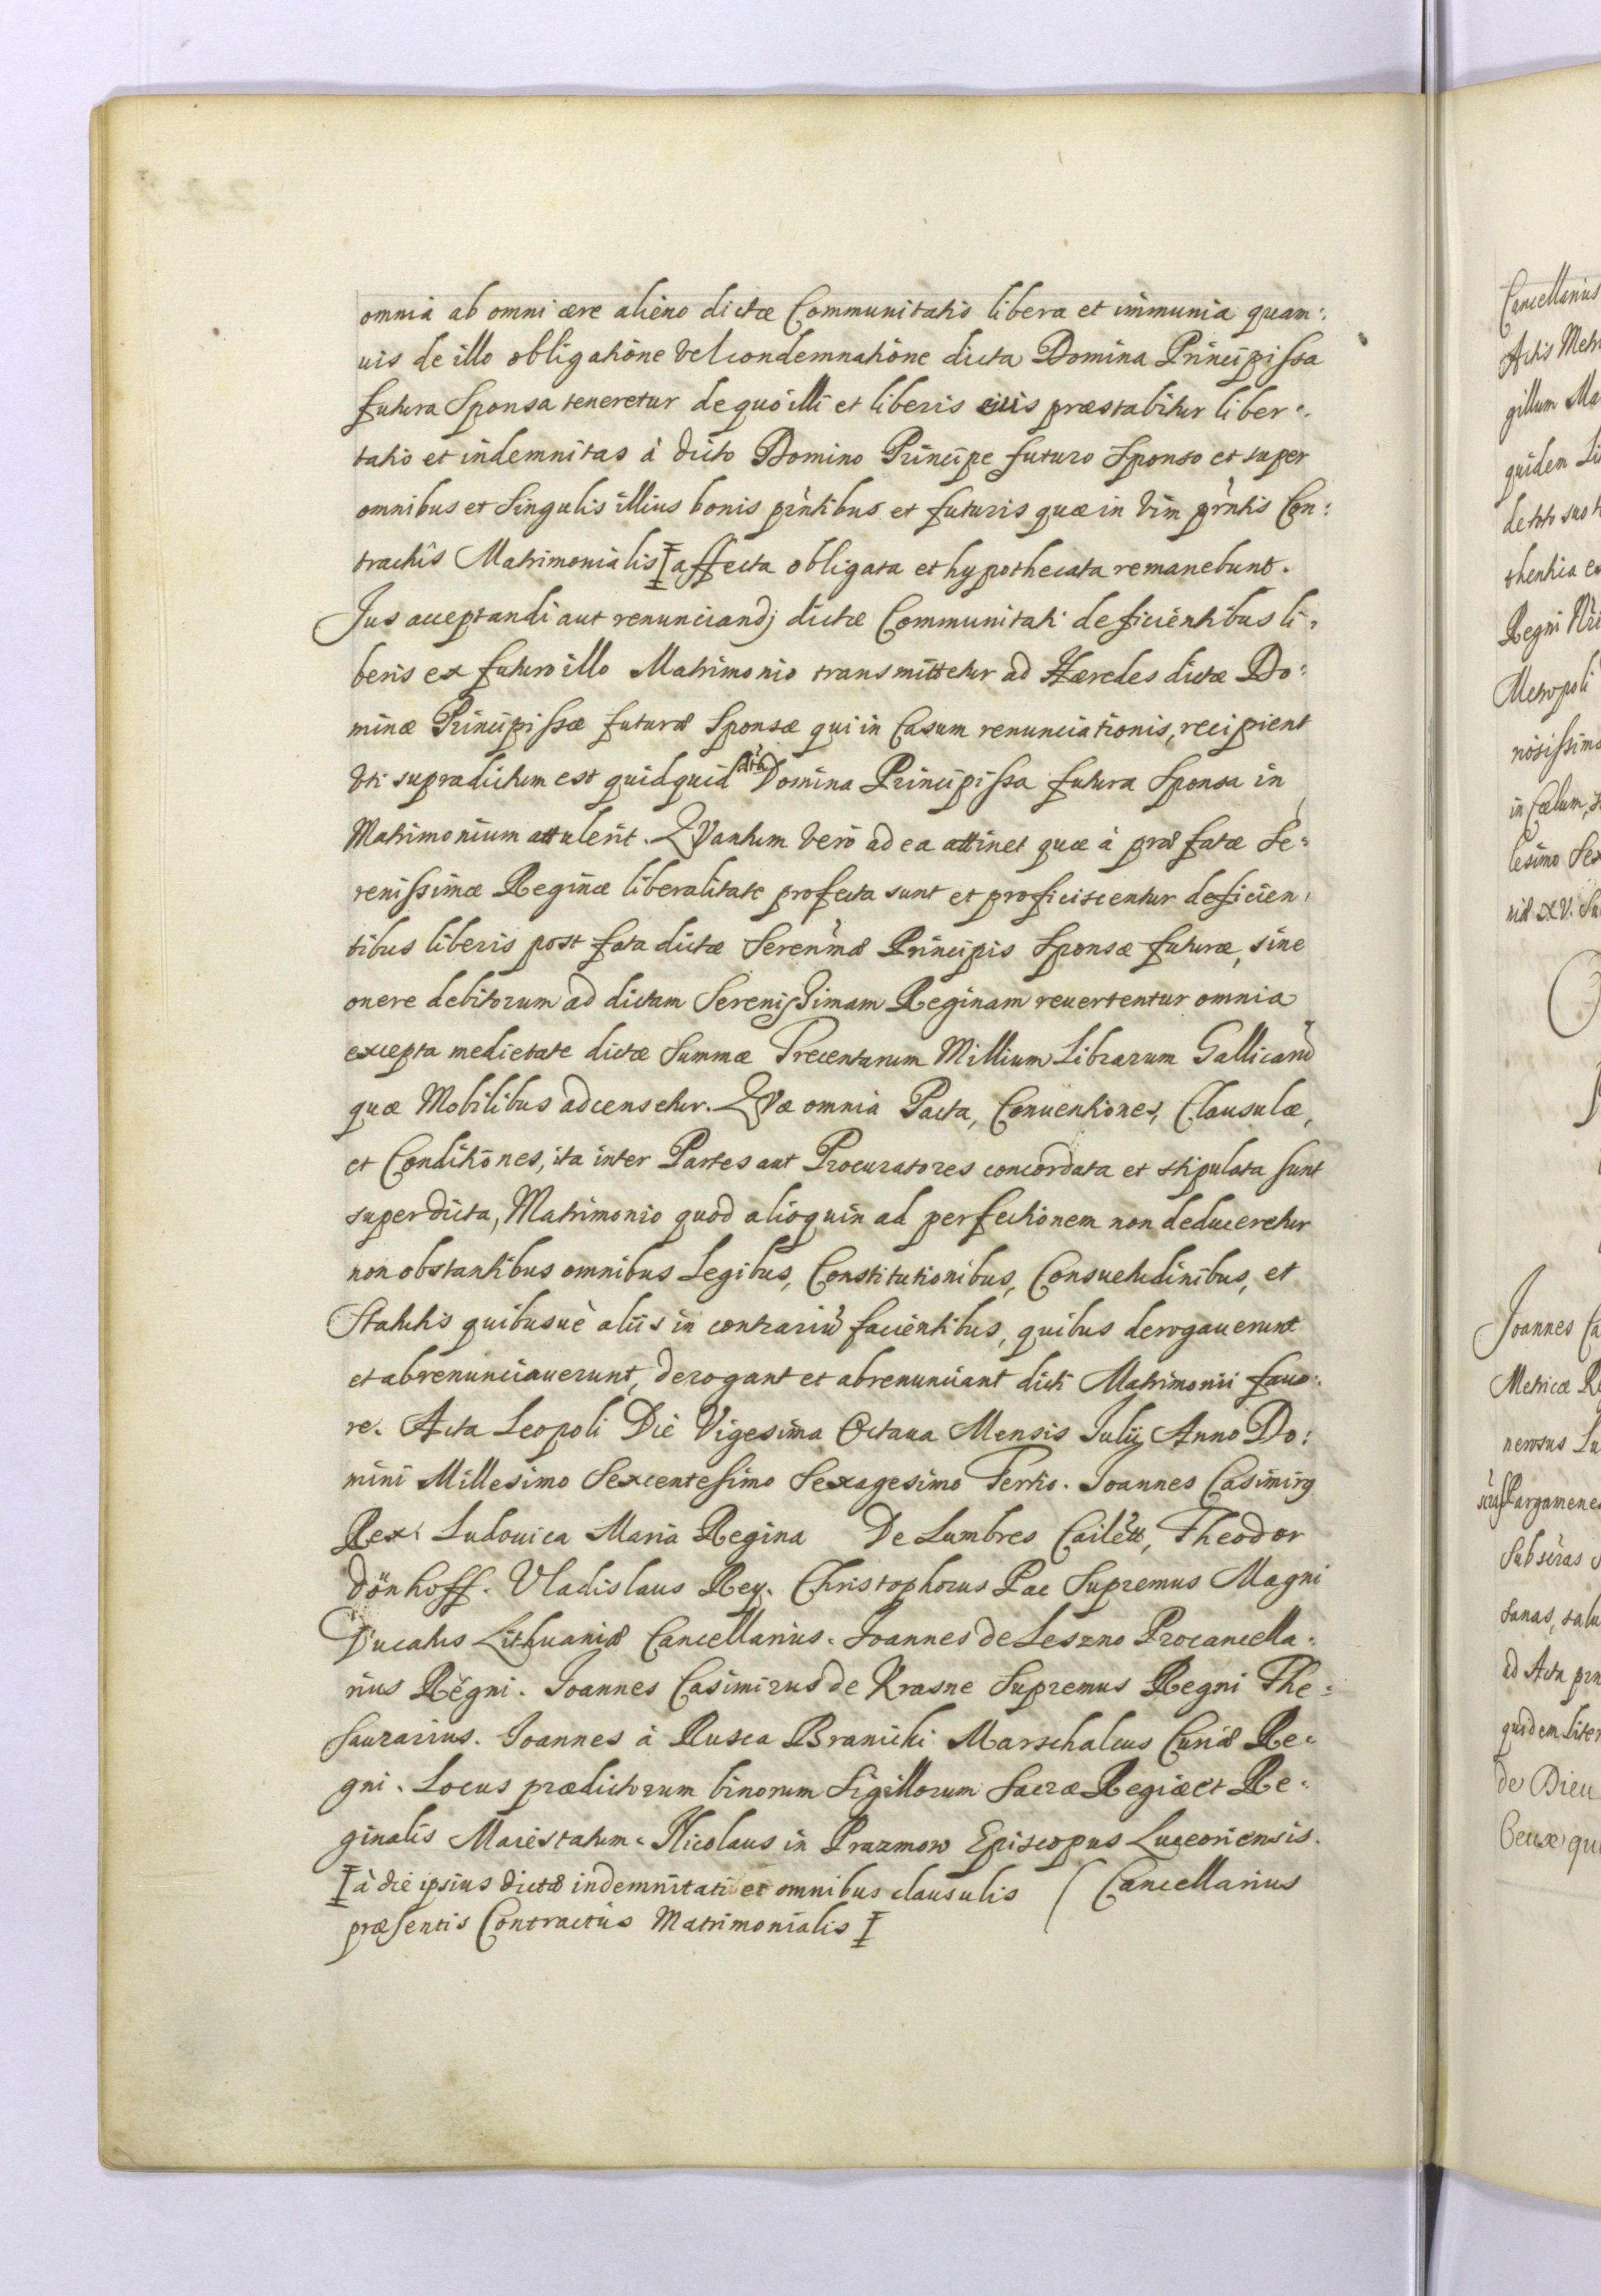 omnia ab omni ære alieno dictæ Communitatis libera et immunia quam:
uis de illo obligatione vel condemnatione dicta Domina Principissa
futura Sponsa teneretur de quo illi et liberis eius præstabitur liber:
tatio et indemnitas à dicto Domino Principe futuro Sponso et super
omnibus et Singulis illius bonis pr̀ntibus et futuris quæ in vim pr̀ntis Con:
tractûs Matrimonialis I affecta obligata et hypothecata remanebunt.
Jus acceptandi aut renunciandj dictæ Communitati deficientibus li:
beris ex futuro illo Matrimonio transmittetur ad Hæredes dictæ Do:
minæ Principissæ futuræ Sponsæ qui in Casum renunciationis, recipient
vti supradictum est quidquid dìta Domina Principissa futura Sponsa in
Matrimonium attulerit. QVantum verò ad ea attinet quæ à præfatæ Se:
renissimæ Reginæ liberalitate profecta sunt et proficiscentur deficien:
tibus liberis post fata dictæ Serenìmæ Principis Sponsæ futuræ, sine
onere debitorum ad dictam Serenissimam Reginam reuertentur omnia
excepta medietate dictæ Summæ Trecentarum Millium Librarum Gallicarũ
quæ Mobilibus adcensetur. QVæ omnia Pacta, Conuentiones, Clausulæ,
et Conditiones, ita inter Partes aut Procuratores concordata et stipulata sunt
superdicta, Matrimonio quod alioquin ad perfectionem non deduceretur
non obstantibus omnibus Legibus, Constitutionibus, Consuetudinibus, et
Statutis quibusuè aliis in contrariũ facientibus, quibus derogauerunt
et abrenunciauerunt, derogant et abrenunciant dicti Matrimonii fauo:
re. Acta Leopoli Die Vigesima Octaua Mensis Julij Anno Do:
mini Millesimo Sexcentesimo Sexagesimo Tertio. Joannes Casimirꝯ
Rex. Ludouica Maria Regina De Lumbres Cailètt, Theodor
Dönhoff. Vladislaus Rey. Christophorus Pac Supremus Magni
Ducatus Lithuaniæ Cancellarius. Joannes de Leszno Procancella:
rius Regni. Joannes Casimirus de Krasne Supremus Regni The:
saurarius. Joannes à Rusca Branicki Marschalcus Curiæ Re:
gni. Locus prædictorum binorum Sigillorum Sacræ Regiæ et Re:
ginalis Maiestatum. Nicolaus in Prazmow Episcopus Luceoriensis.
I à die ipsius dictæ indemnitati et omnibus clausulis ( Cancellarius
præsentis Contractùs Matrimonialis I
Cancellarius
Actis Metr
gillum Ma
quidem Li
de toto suo t
thentica e
Regni
Metropoli
nosissimo
in Cœlum,
lesimo Sex
Joannes Ca
Metricæ R
nersus Lu
Pargamene
Subscr̀as
sanas, salu
ad Acta prn
quidem Liter
de Dieu
Ceux qui